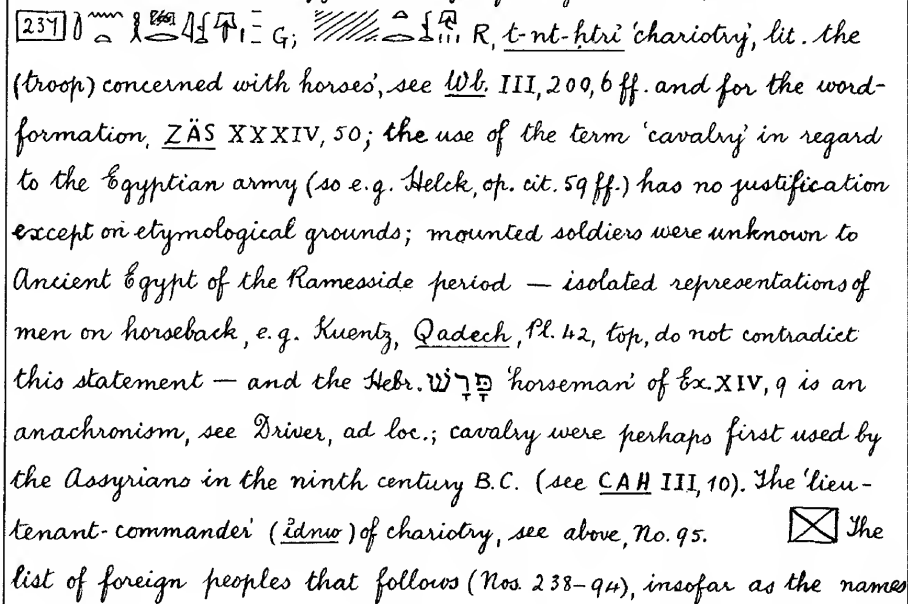 237 G; R, t-nt-ḥtri 'chariotry', lit. the
(troop) concerned with horses', see Wb. III, 200, 6 ff. and for the word-
formation, ZÄS XXXIV, 50; the use of the term 'cavalry' in regard
to the Egyptian army (so e.g. Helck, op. cit. 59 ff.) has no justification
except on etymological grounds; mounted soldiers were unknown to
Ancient Egypt of the Ramesside period — isolated representations of
men on horseback, e.g. Kuentz, Qadech, Pl. 42, top, do not contradict
this statement — and the Hebr. פָּרָשׁ 'horseman' of Ex. XIV, 9 is an
anachronism, see Driver, ad loc.; cavalry were perhaps first used by
the Assyrians in the ninth century B.C. (see CAH III, 10). The 'lieu-
tenant-commander' (idnw) of chariotry, see above, No. 95. The
list of foreign peoples that follows (Nos. 238–94), insofar as the names